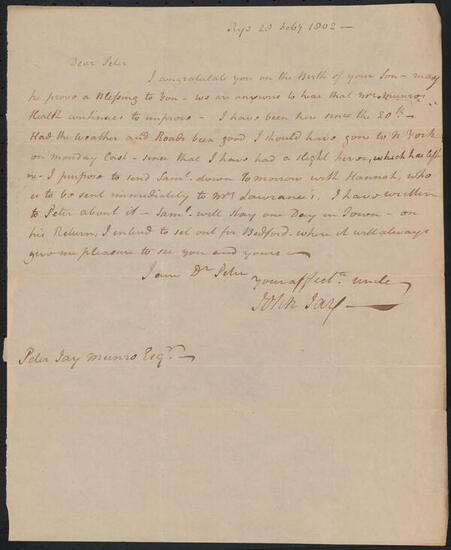 Rye 28 Feby 1802 —
Dear Peter
I congratulate you on the Birth of your Son — may
he prove a Blessing to You — we are anxious to hear that Mrs Munro's
Health continues to improve — I have been here since the 20th —
Had the weather and Roads been good, I should have gone to N York
on monday last — since that I have had a slight fever, which has left
me — I purpose to send Saml. down to morrow with Hannah, who
is to be sent immediately to Mrs Lawrance's. I have written
to Peter about it — Saml. will stay one Day in Town — on
his Return, I intend to set out for Bedford — where it will always
give me pleasure to see you and yours —
I am Dr. Peter
your affectte. uncle
John Jay —
Peter Jay Munro Esqr. —